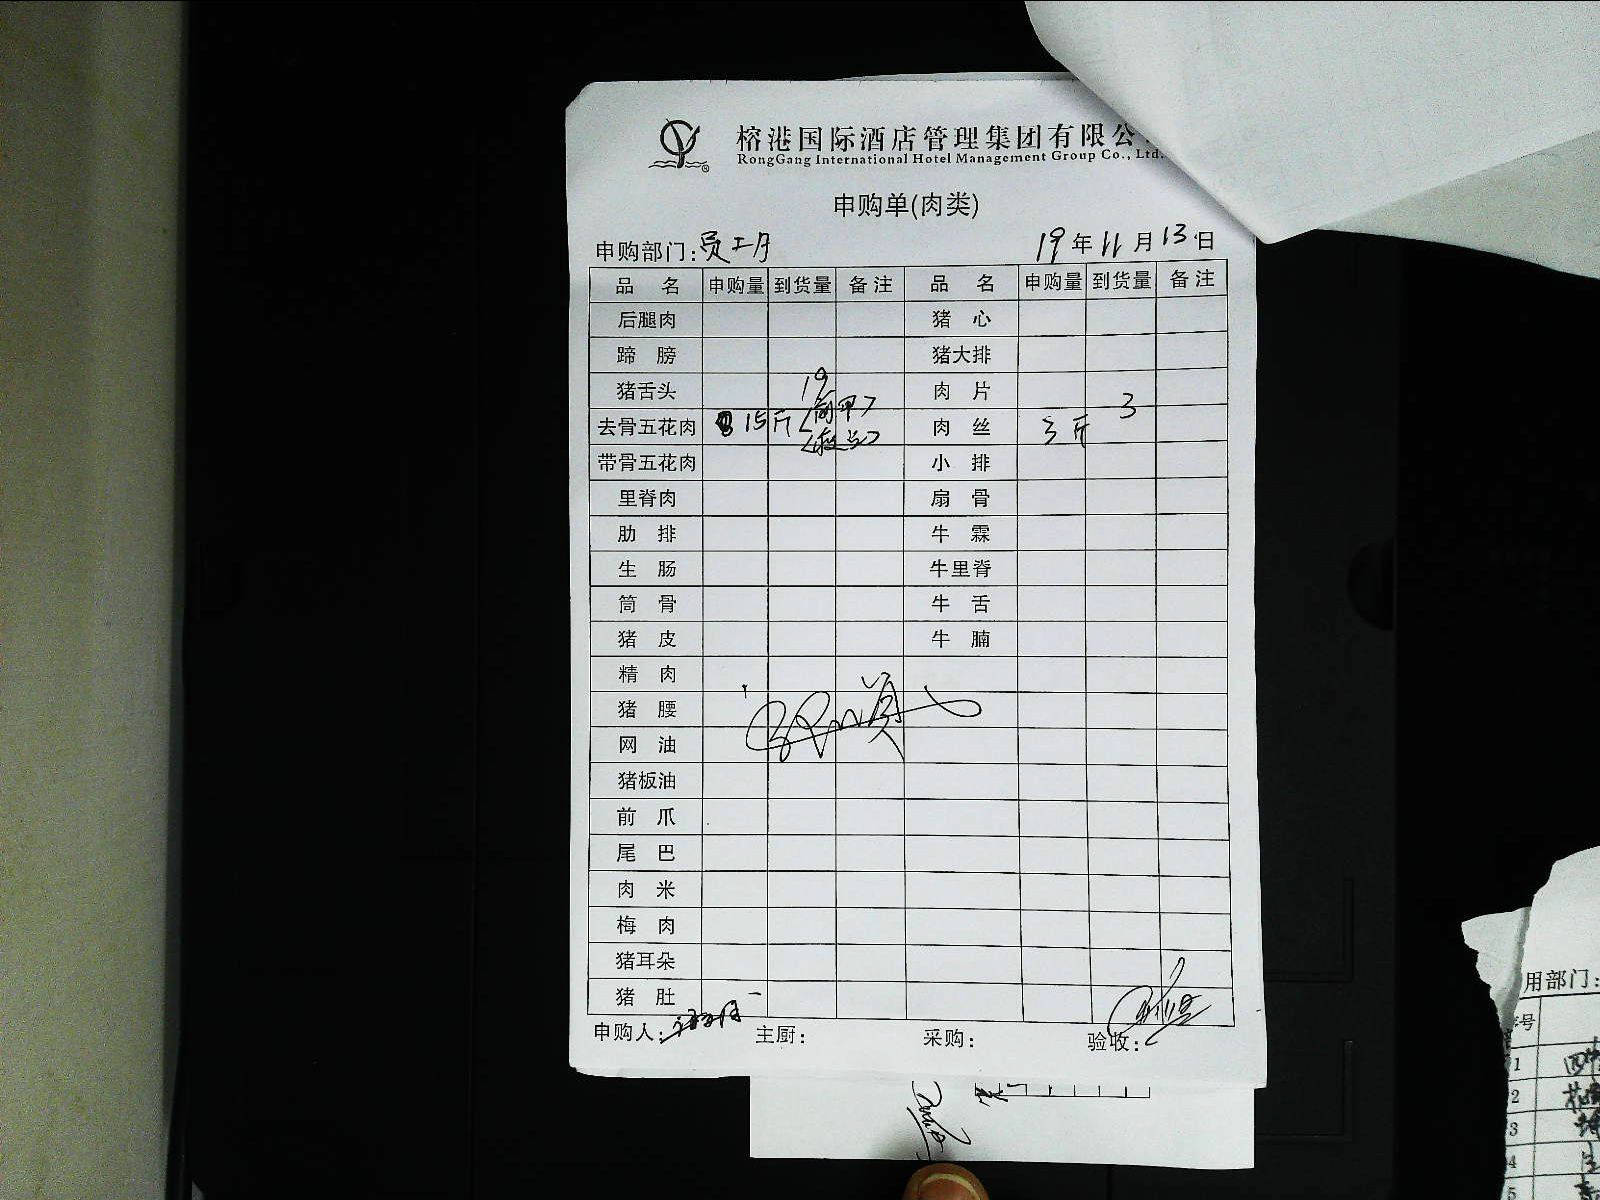 榕港国际酒店管理集团有限公
RongGang International Hotel Management Group Co., Ltd.
申购单(肉类)
申购部门: 员工 19年11月13日
品名 申购量 到货量 备注 品名 申购量 到货量 备注
后腿肉 猪心
蹄膀 猪大排
猪舌头 19 肉片
去骨五花肉 15斤 肉丝 3斤 3
带骨五花肉 小排
里脊肉 扇骨
肋排 牛霖
生肠 牛里脊
筒骨 牛舌
猪皮 牛腩
精肉
猪腰
网油
猪板油
前爪
尾巴
肉米
梅肉
猪耳朵
猪肚
申购人: 主厨: 采购: 验收:
用部门:
号
1
2
3
4
5